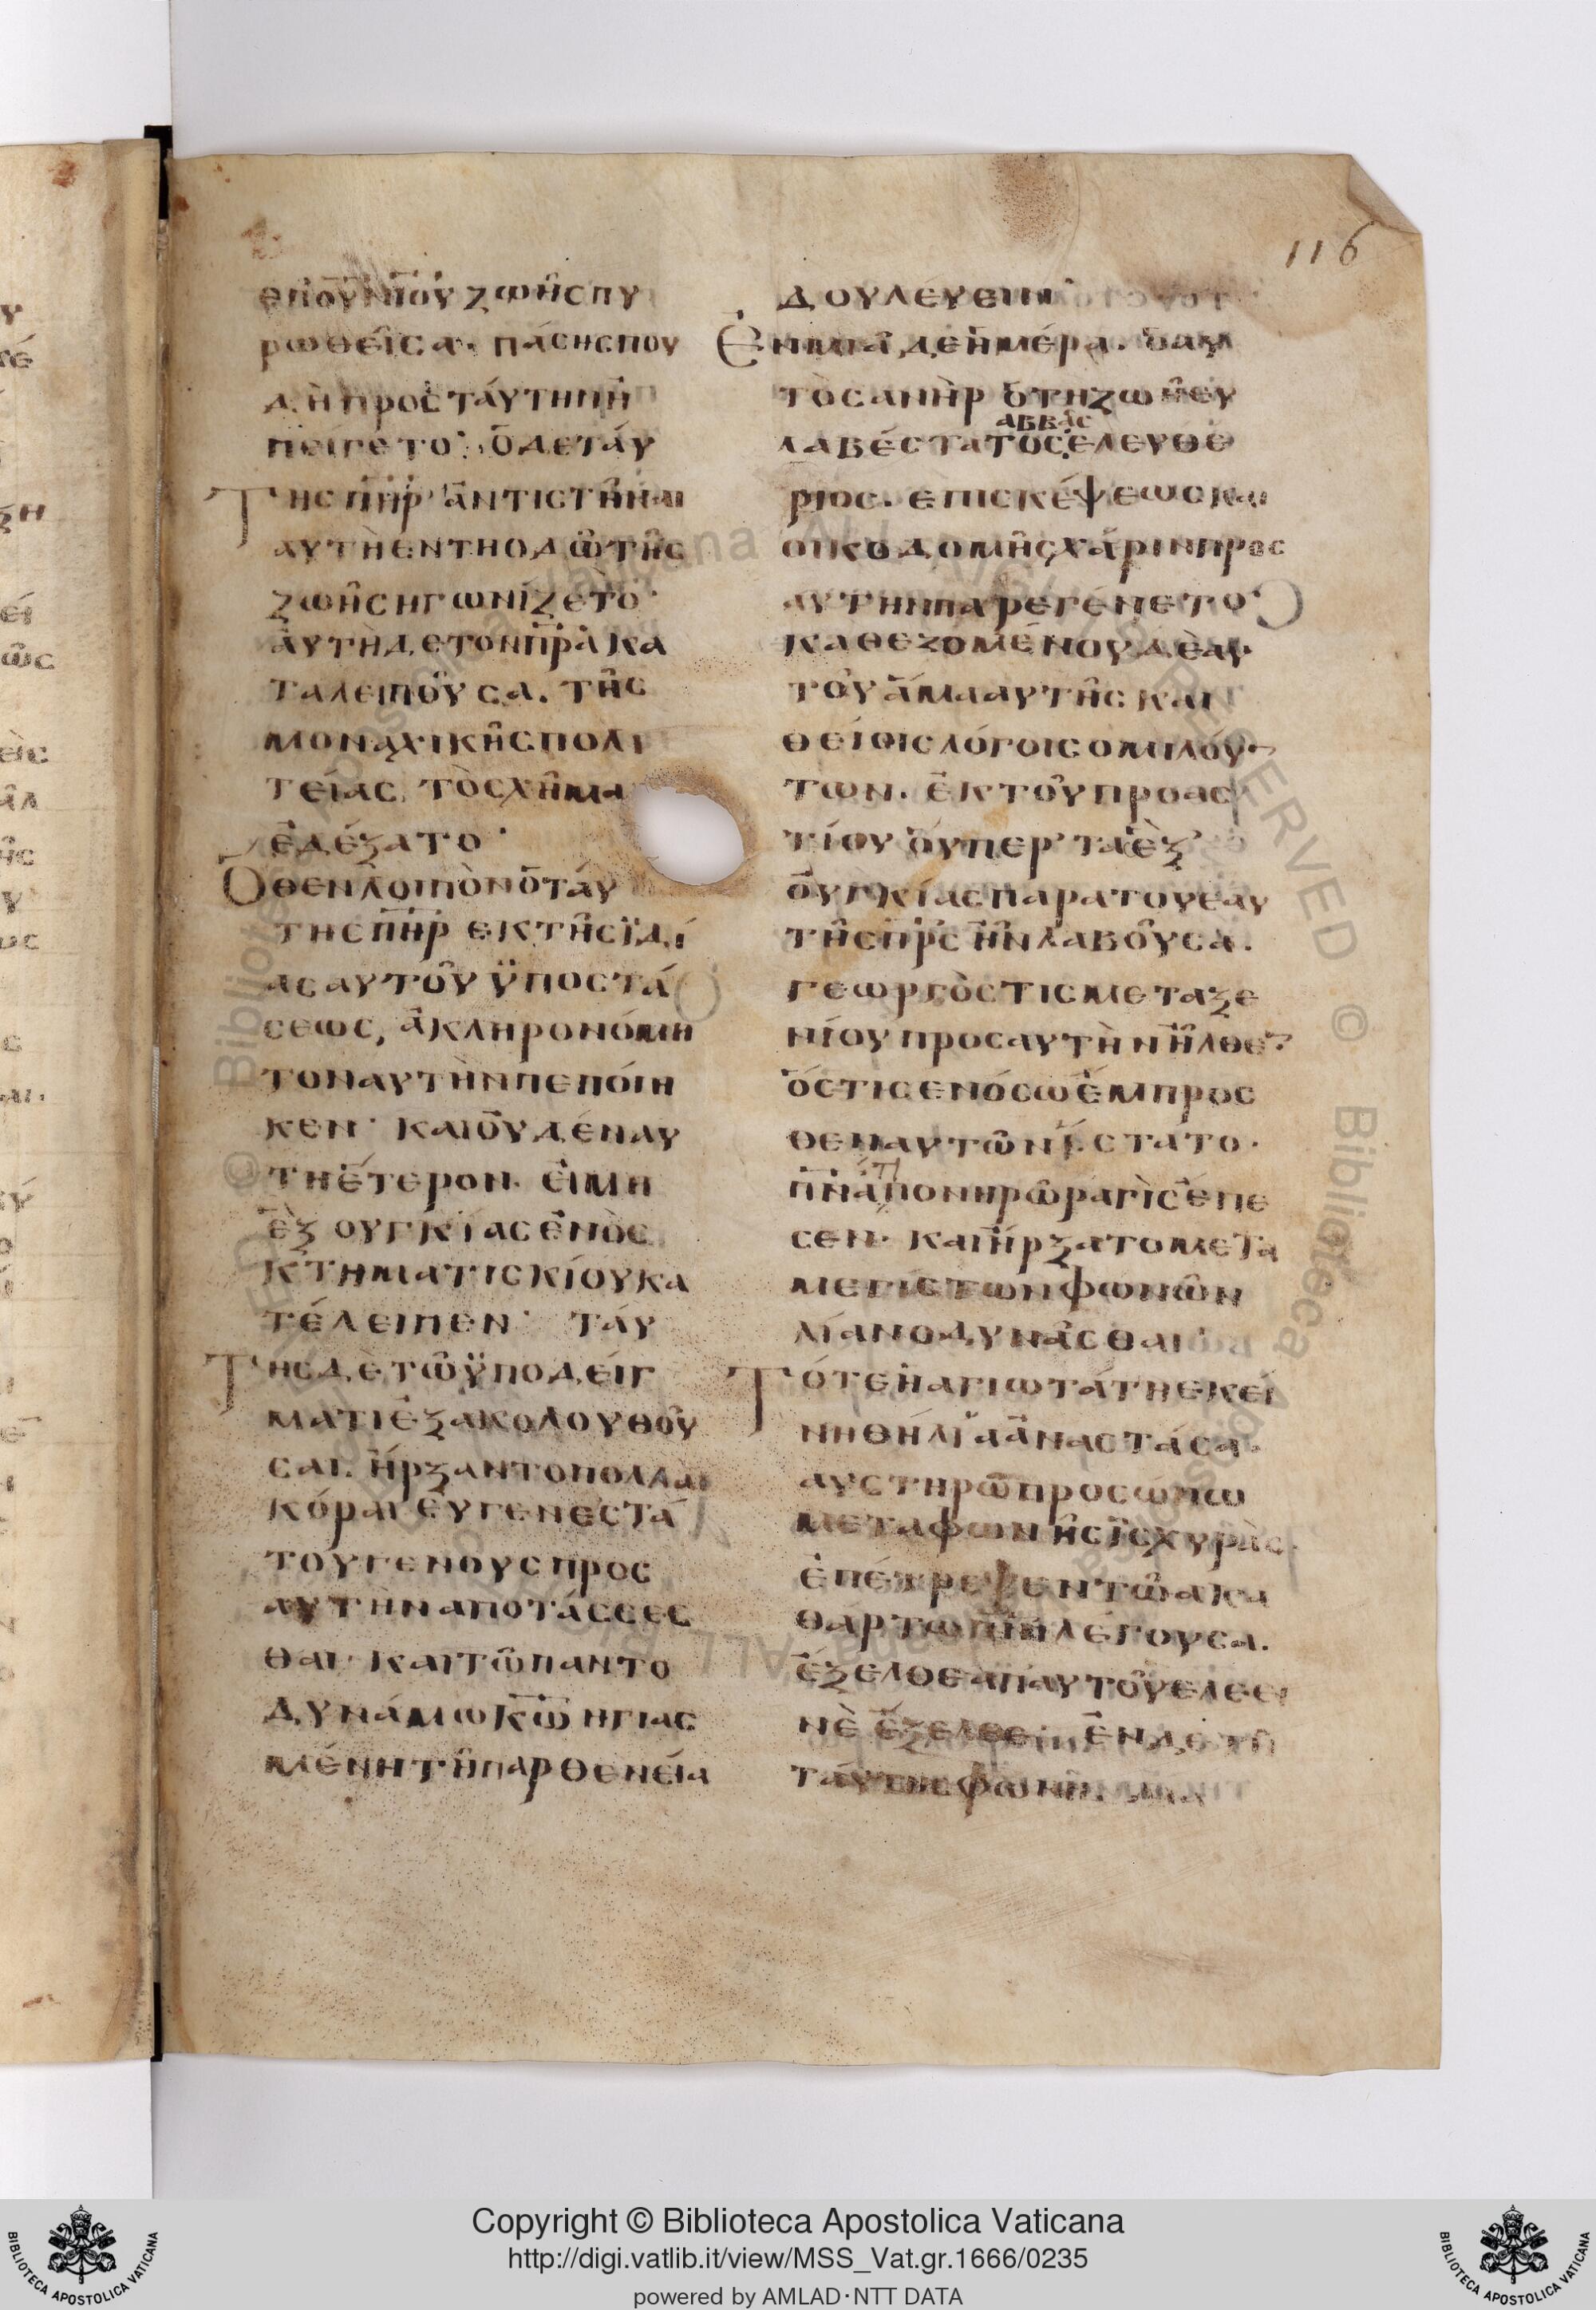 116
ἐπουνίου ζωῆς πυ
ρωθεῖσα· πάσης που
δῆ προς ταύτην ἠ
πείγετο· ὁ δε ταύ
της πὴρ ἀντιστῆναι
αυτὴ ἐν τη οδῶ τῆς
ζωῆς ηγωνίζετο·
ἀυτὴ δε τον πρα κα
ταλειποῦσα. τῆς
μοναχικῆς πολι
τείας, τὸ σχῆμα
ἐδέξατο·
Οθεν λοιπὸν ὁ ταύ
της πὴρ εκ τῆς ϊδί
ας αυτοῦ ϋποστά
σεως, ἀκληρονόμη
τον αυτὴν πεποίη
κεν· και οὐδέν αυ
τη ἕτερον. εἰ μη
ἓξ ουγκίας ἑνὸς
κτηματισκίου κα
τέλειπεν· ταύ
της δὲ τῶ ϋποδείγ
ματι ἐξακολουθοῦ
σαι. ἤρξαντο πολλαι
κόραι ἐυγενεστά
του γενους προς
αυτὴν αποτάσσες
θαι· και τῶ παντο
δυνάμω κω ηγιας
μένη τῆ παρθενεία
δουλέυειν·
Ἐν μιᾶ δε ἡμέρα. ὁ αυ
τὸς ανὴρ ὁ τη ζωῆ ευ
αββᾶς
λαβέστατος ελευθέ
ριος. επισκέψεως και
οικοδομῆς χάριν προς
αυτην παρεγένετο·
καθεζομένου δὲ αυ
τοῦ ἅμα αυτῆς και
θείοις λόγοις ομιλούν
των. ἐκ τοῦ προασ
τίου ὅυπερ τα ἓξ
ὀυγκίας παρα του εαυ
τῆς πρς ῆν λαβοῦσα.
γεωργὸς τις μετα ξε
νίου προς αυτὴν ἦλθε·
ὅστις εν όσω ἔμπρος
θεν αυτῶν ΐστατο·
πνι
πνα πονηρῶ ραγὶς ἔπε
σεν· και ἤρξατο μετα
μεγίστων φωνῶν
λίαν οδυνᾶσθαι·
Τότε ἡ αγιωτάτη εκεί
νη θήλια ἀναστάσα·
αυστηρῶ προσώπω
μετα φωνῆς ϊσχυρᾶς·
ἐπέτρεψεν τῶ ακα
θάρτω πνι λέγουσα.
ἔξελθε ἀπ αυτοῦ ελεει
νὲ ἔξελθε· ἐν δε τῆ
ταύτης φωνῆ.
Copyright © Biblioteca Apostolica Vaticana
http://digi.vatlib.it/view/MSS_Vat.gr.1666/0235
powered by AMLAD·NTT DATA